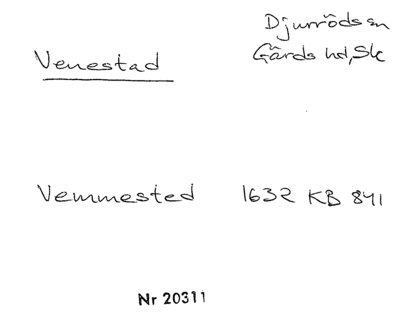 Venestad
Djurröds sn
Gärds hd, Sk
Vemmested 1632 KB 841
Nr 20311